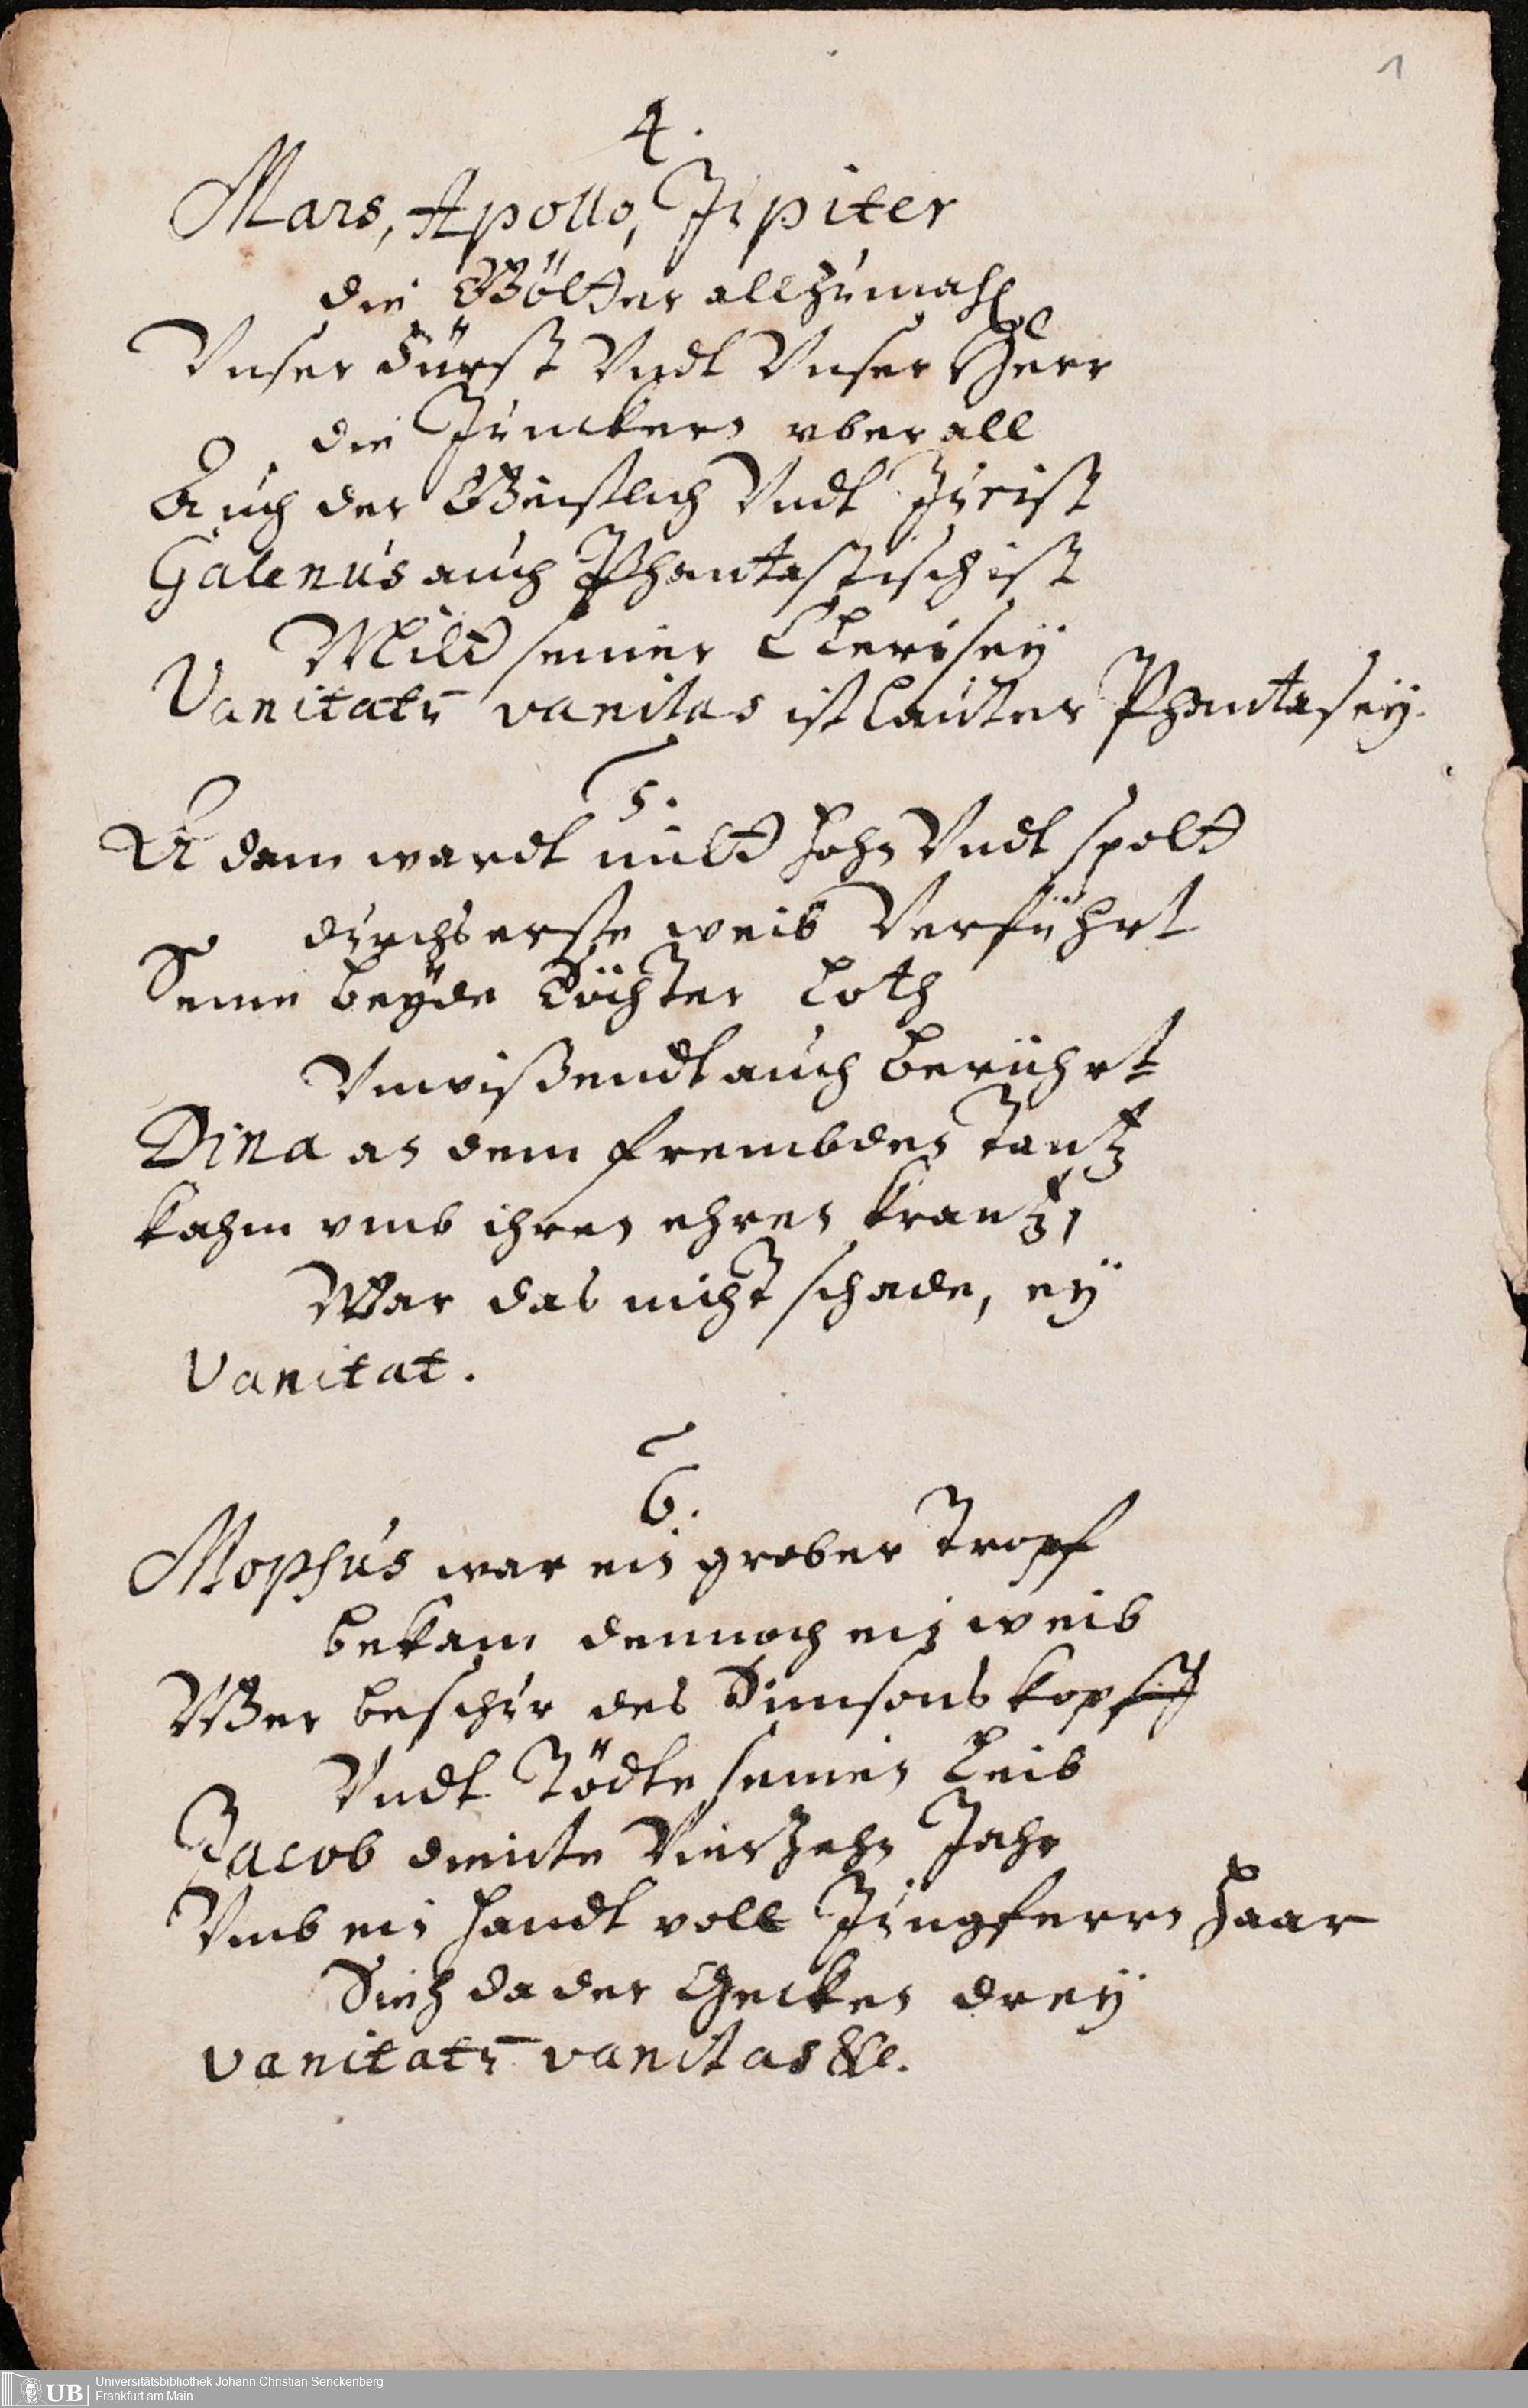 1
4.
Mars, Apollo, Jupiter
die Götter allzumahl
Vnser Fürst Vndt Vnser Herr
die Junckern vberall
Auch der Geistlich Vndt Jurist
Galenus auch Phantastisch ist
Mitt seiner Clerisey
Vanitatū vanitas ist lauter Phantasey.
5.
Adam wardt mitt hohn Vndt spott
durchs erste weib Verführt
Seine beyde Töchter Loth
Vnwißendt auch berührt
Dina an dem frembden Tantz
kahm vmb ihren ehren krantz,
War das nicht schade, ey
Vanitat.
6.
Mopsus war ein grober Tropf
bekam dennoch ein weib
Wer beschur des Simsons kopf
Vndt Tödte seinen Leib
Jacob diente Vierzehn Jahr
Vmb ein handt voll Jungferrn haar
Sieh da der Gecken drey
vanitatū vanitas &c.
UB
Universitätsbibliothek Johann Christian Senckenberg
Frankfurt am Main